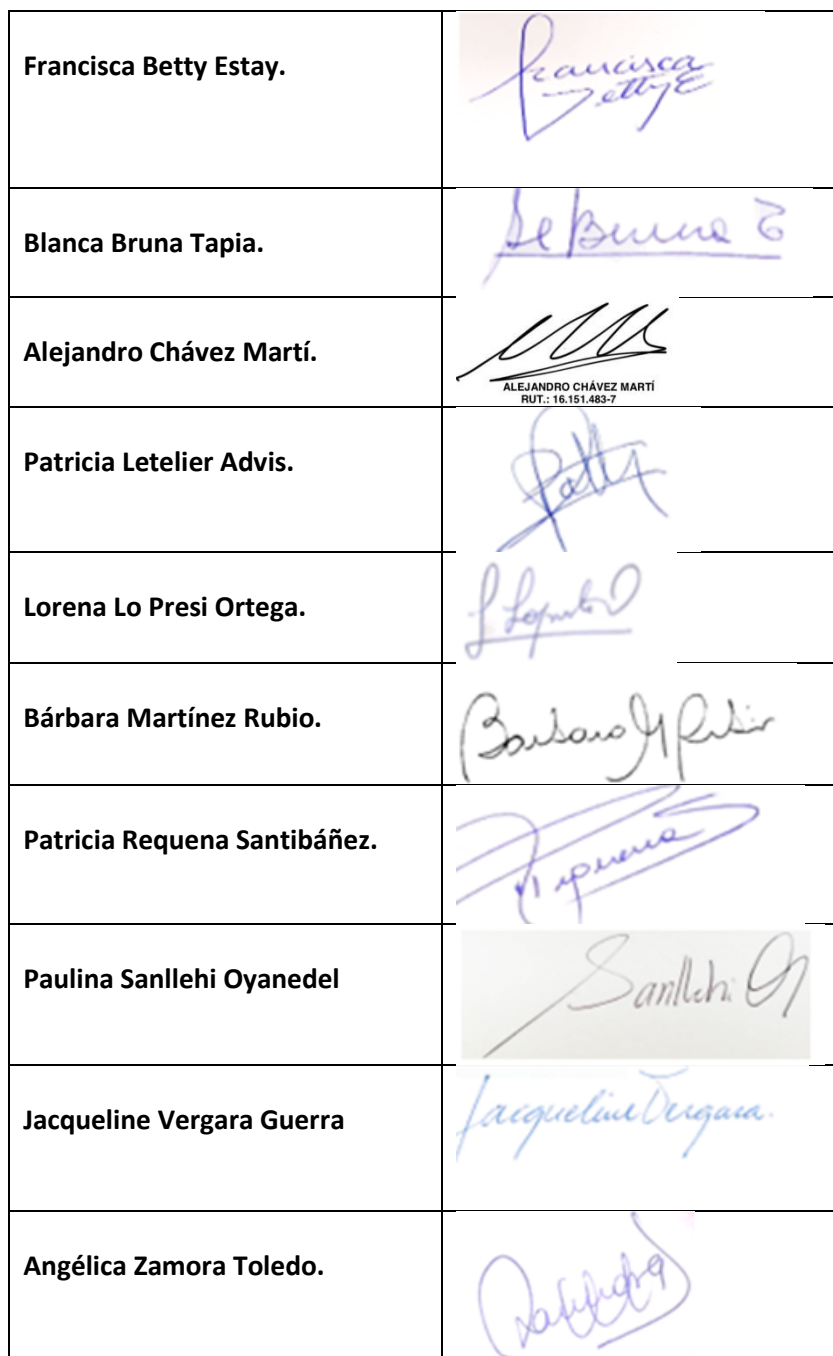 Francisca Betty Estay.
Francisca
Betty E
Blanca Bruna Tapia.
Bruna
Alejandro Chávez Martí.
ALEJANDRO CHÁVEZ MARTÍ
RUT.: 16.151.483-7
Patricia Letelier Advis.
Patty
Lorena Lo Presi Ortega.
Bárbara Martínez Rubio.
Barbara M Rubio
Patricia Requena Santibáñez.
Requena
Paulina Sanllehi Oyanedel
Sanllehi
Jacqueline Vergara Guerra
Jacqueline Vergara.
Angélica Zamora Toledo.